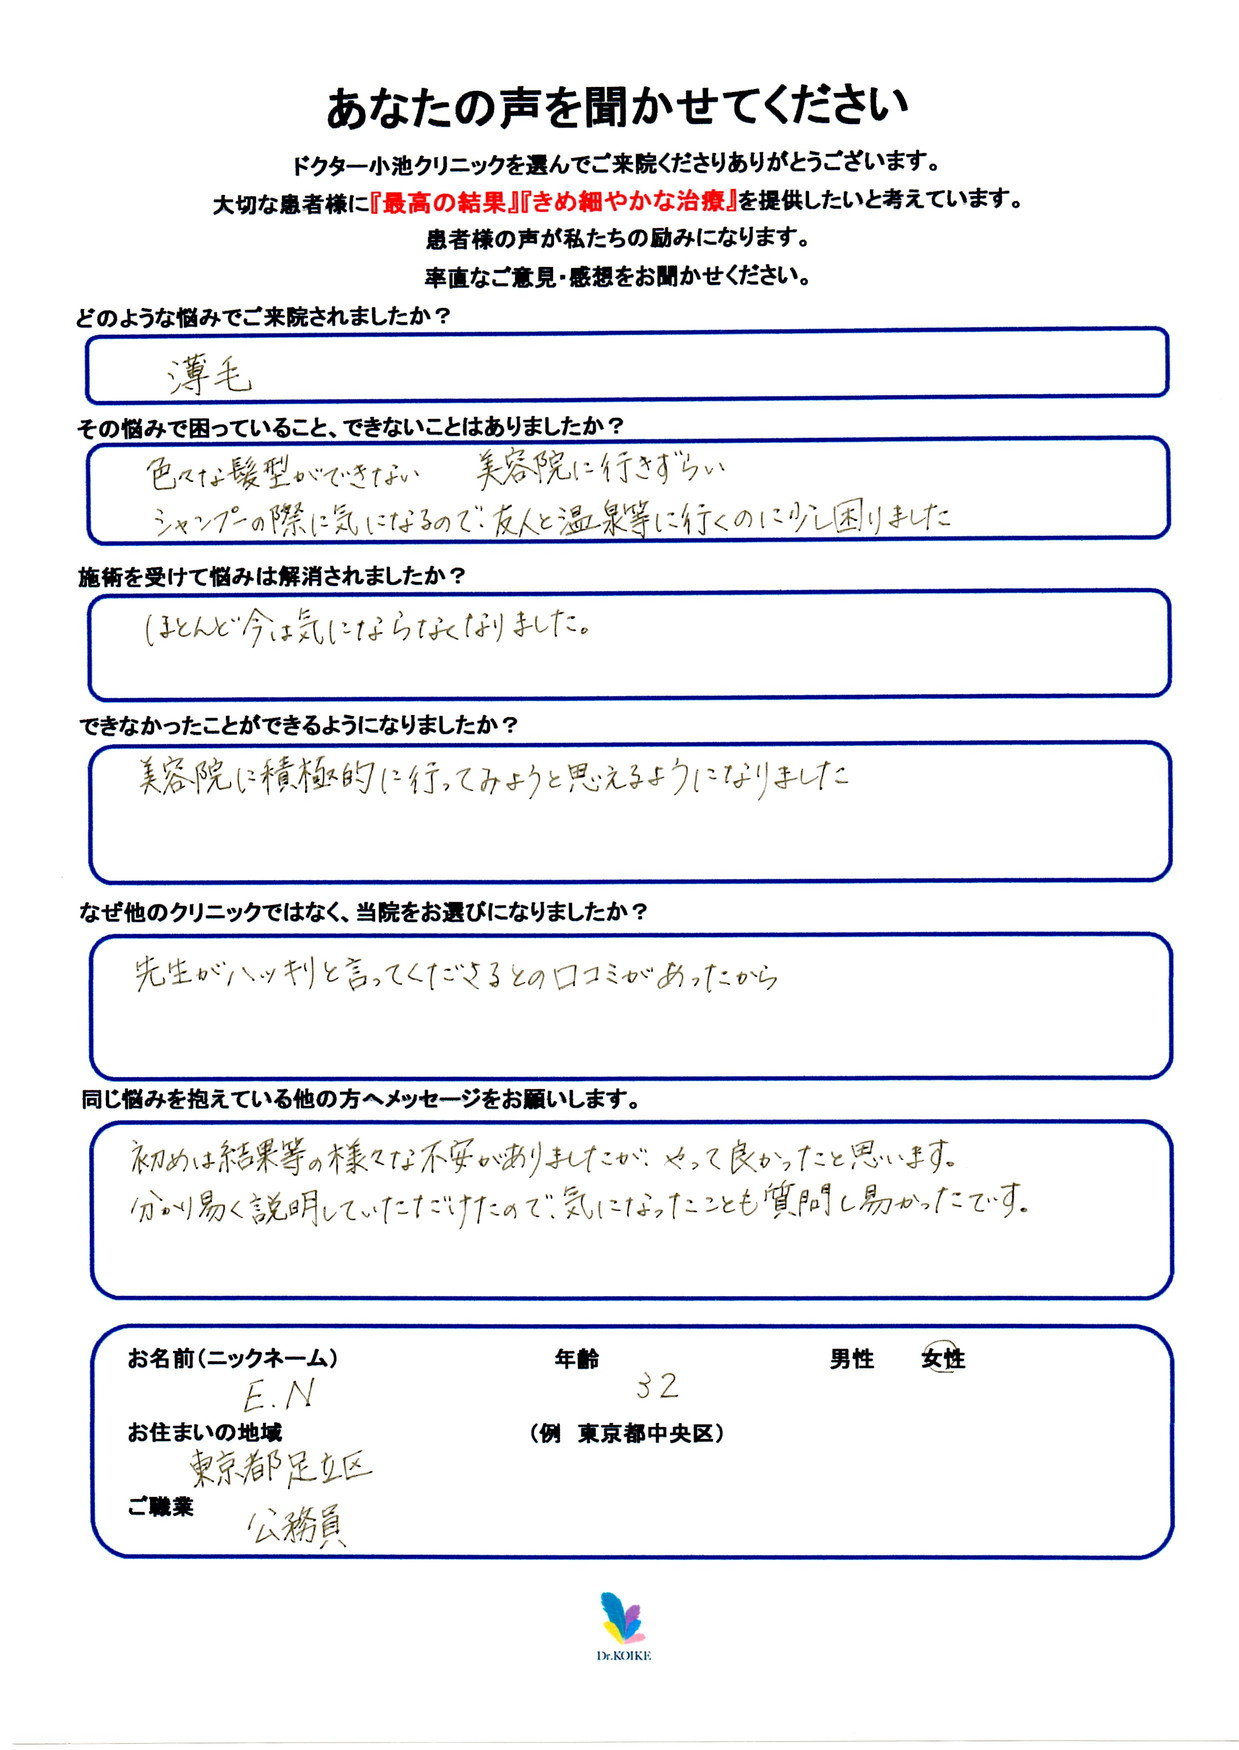 あなたの声を聞かせてください
ドクター小池クリニックを選んでご来院くださりありがとうございます。
大切な患者様に『最高の結果』『きめ細やかな治療』を提供したいと考えています。
患者様の声が私たちの励みになります。
率直なご意見・感想をお聞かせください。
どのような悩みでご来院されましたか？
薄毛
その悩みで困っていること、できないことはありましたか？
色々な髪型ができない　美容院に行きずらい
シャンプーの際に気になるので、友人と温泉等に行くのに少し困りました
施術を受けて悩みは解消されましたか？
ほとんど今は気にならなくなりました。
できなかったことができるようになりましたか？
美容院に積極的に行ってみようと思えるようになりました
なぜ他のクリニックではなく、当院をお選びになりましたか？
先生がハッキリと言ってくださるとの口コミがあったから
同じ悩みを抱えている他の方へメッセージをお願いします。
初めは結果等の様々な不安がありましたが、やって良かったと思います。
分かり易く説明していただけたので、気になったことも質問し易かったです。
お名前（ニックネーム）　年齢　男性　女性
E.N　32
お住まいの地域　（例　東京都中央区）
東京都足立区
ご職業
公務員
Dr.KOIKE